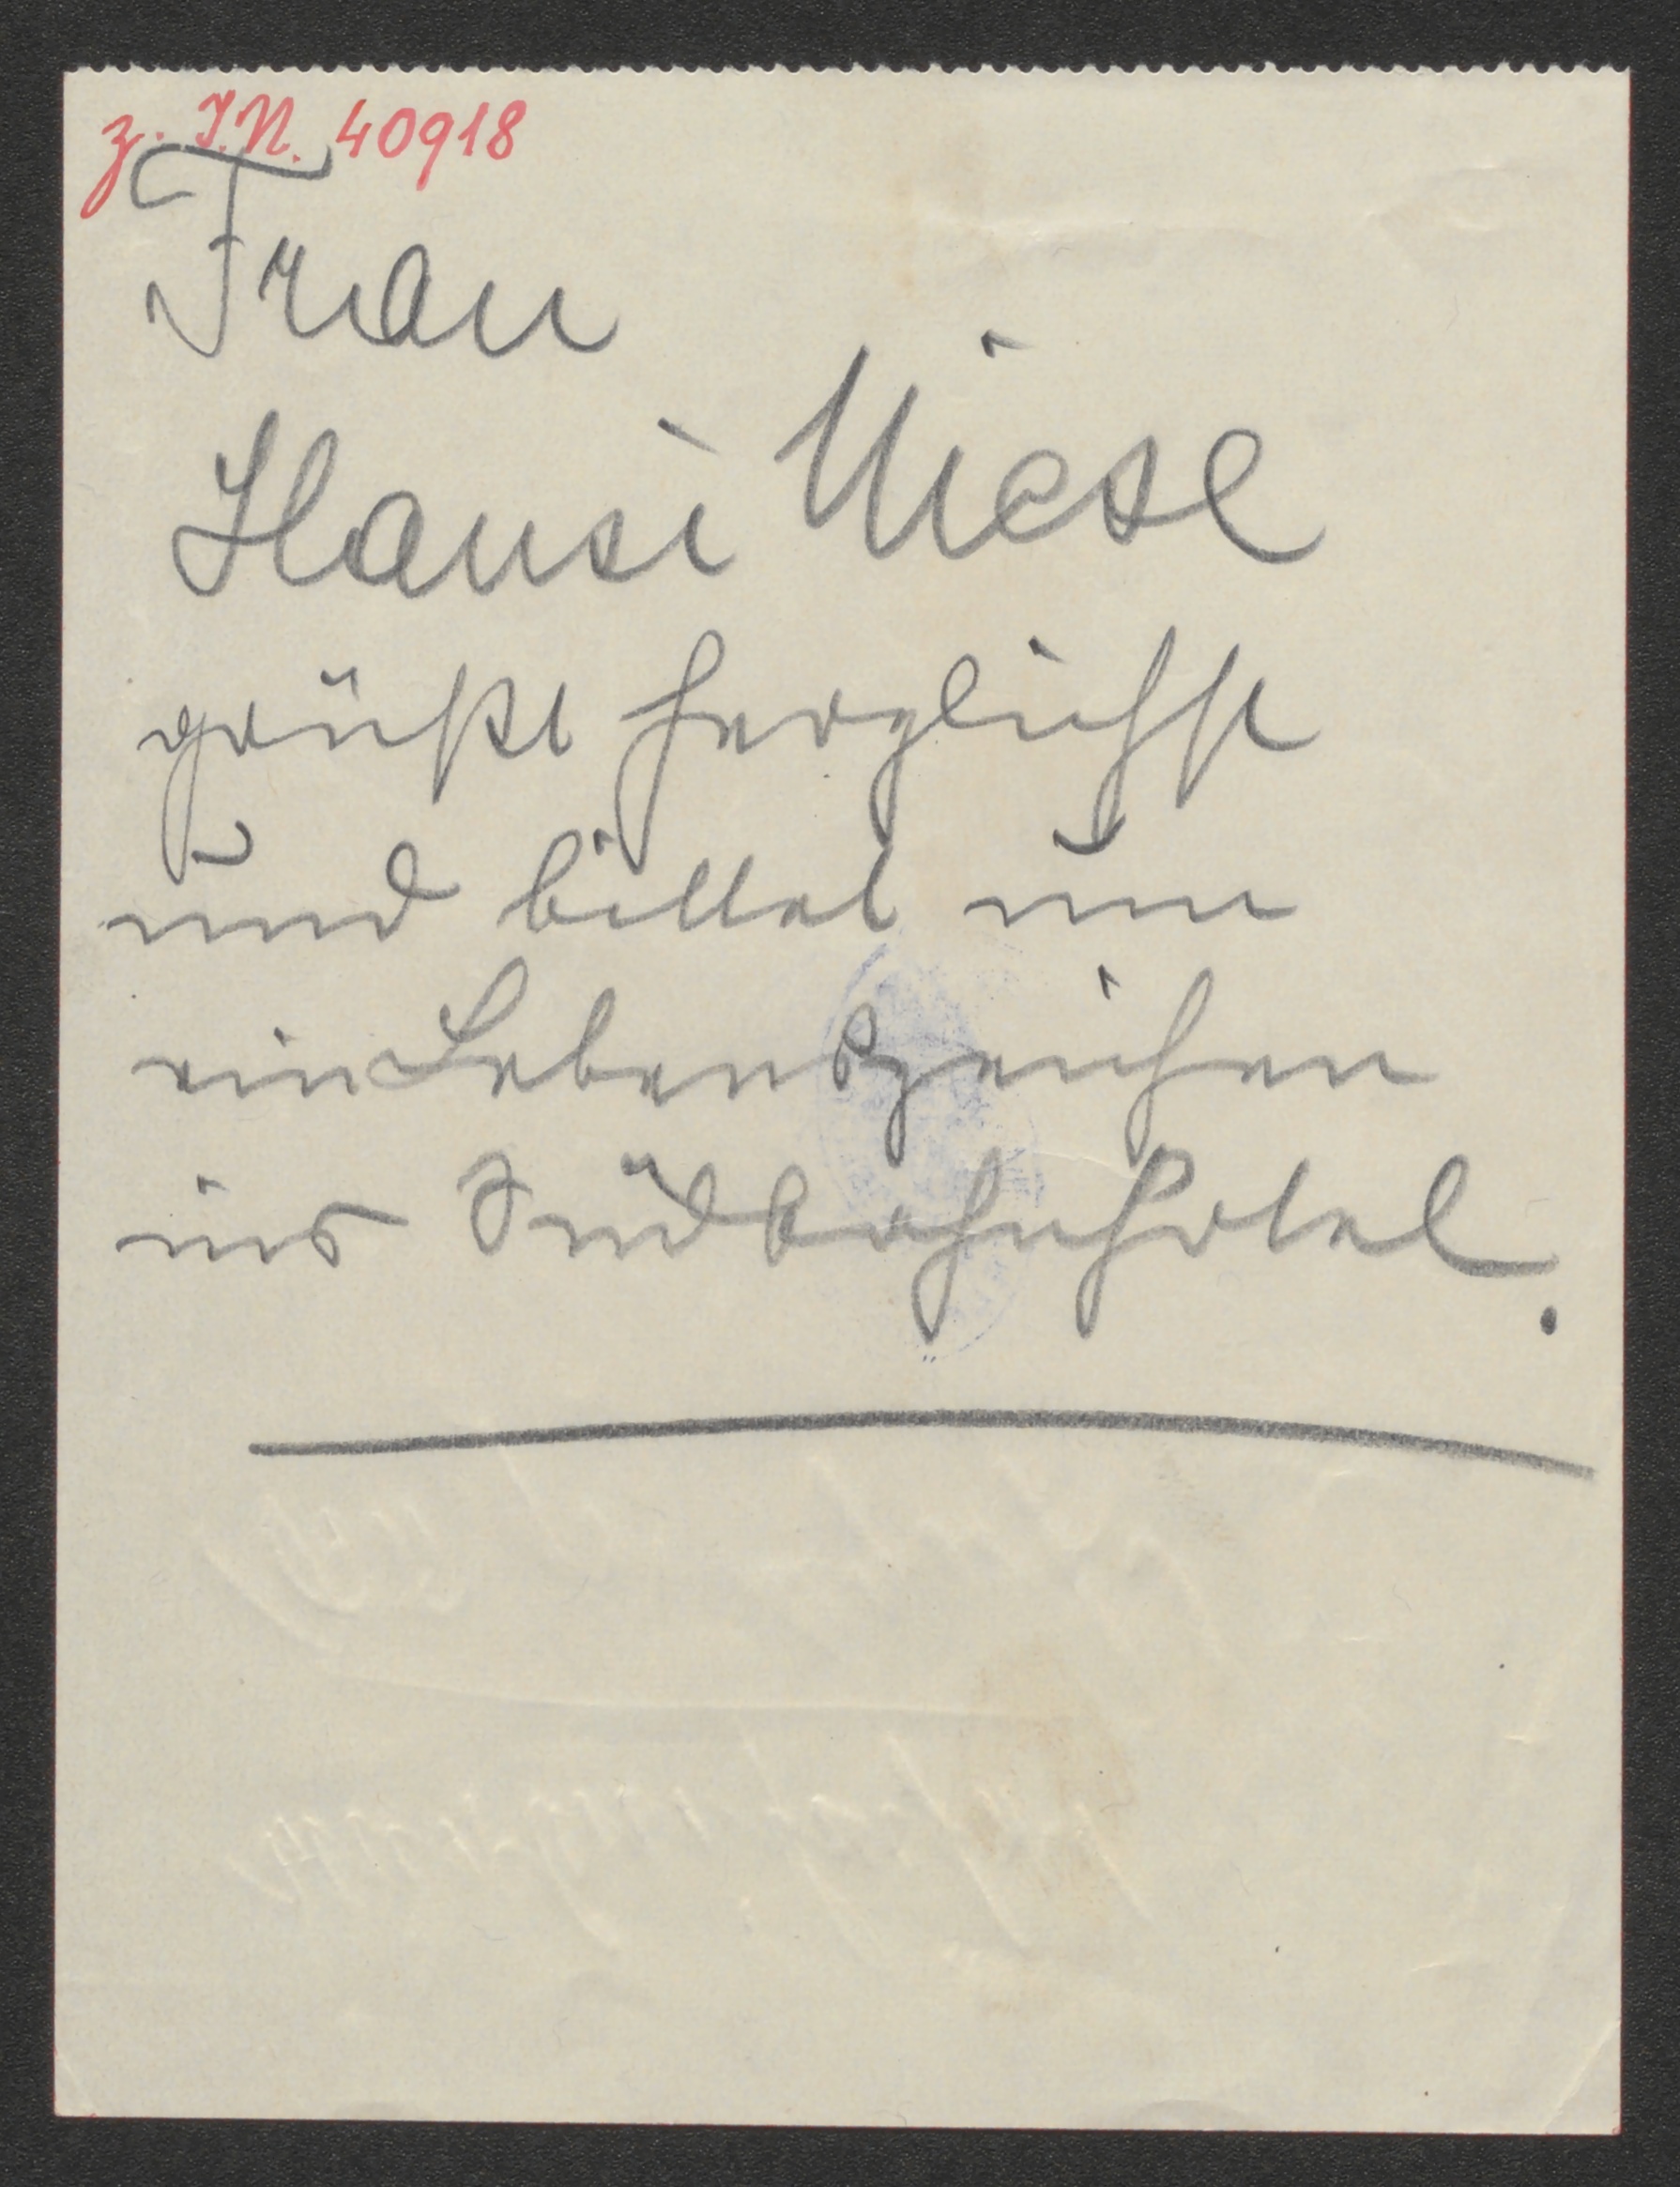 z. I.N. 40918
Frau
Hansi Niese
grüßt herzlichst
und bittet um
ein Lebenszeichen
ins Südbahnhotel.